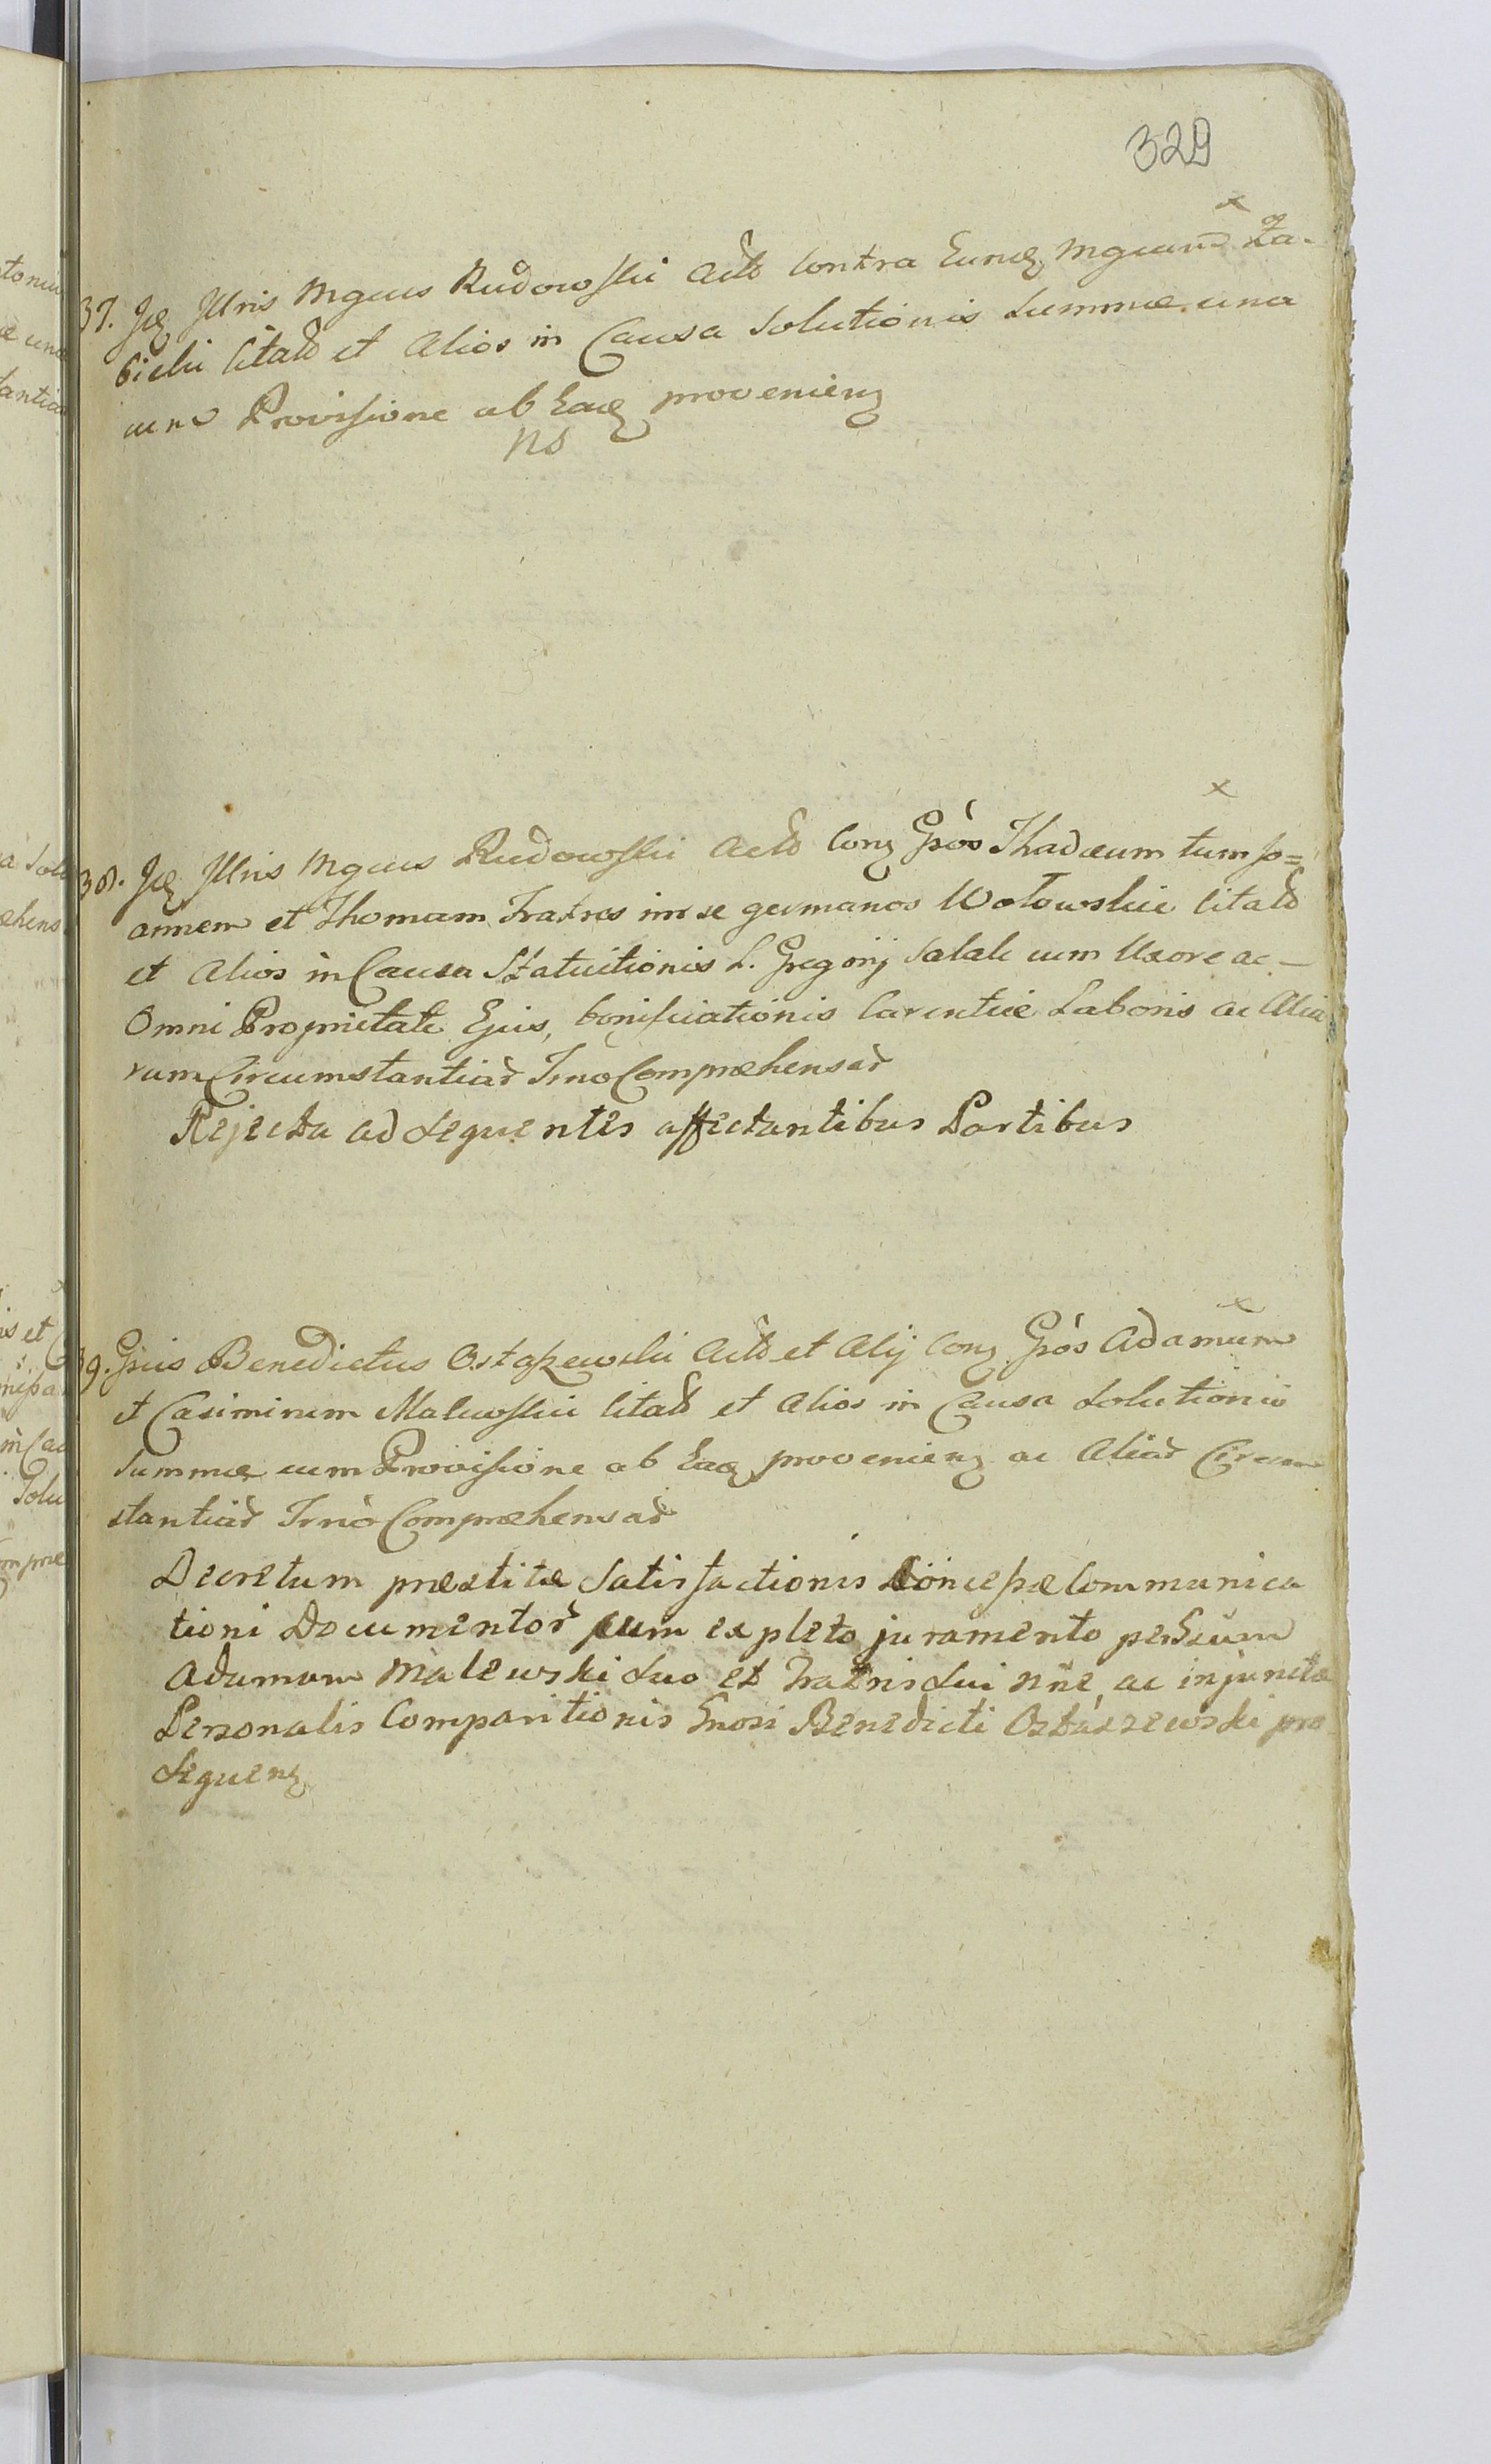 329
x
37. Jdę Jllris Mgcus Rudowski Actō contra Eundę Mgcum Za-
bicki Citatō et Alios in Causa Solutionis Summæ una
cum Provisione ab Eadę provenienę
ns
x
38. Jdę Jllris Mgcus Rudowski Actō Conę Gsōs Thadæum tum Jo=
annem et Thomam Fratres inr se germanos Wołowskie Citatō
et Alios in Causa Statuitionis L. Gregorij Salak cum Uxore ac
Omni Proprietate Ejus, bonificationis Carentiæ Laboris ac Alia
rum Circumstantiar̃ Trnō Comprehensar̃
Rejecta ad sequentes affectantibus Partibus
x
39. Gsus Benedictus Ostaszewski Actō et Alij Conę Gsōs Adamum
et Casimirum Malewskie Citatō et Alios in Causa Solutionis
Summæ cum Provisione ab Eadę provenienę ac Aliar̃ Circum
stantiar̃ Trnō Comprehensar̃
Decretum præstitæ Satisfactionis Concessæ Communica
tioni Documentor̃ cum expleto juramento per Gsum
Adamum Malewski suo et Fratris sui nñe ac injunctæ
Personalis Comparitionis Gnosi Benedicti Ostaszewski pro
sequenę